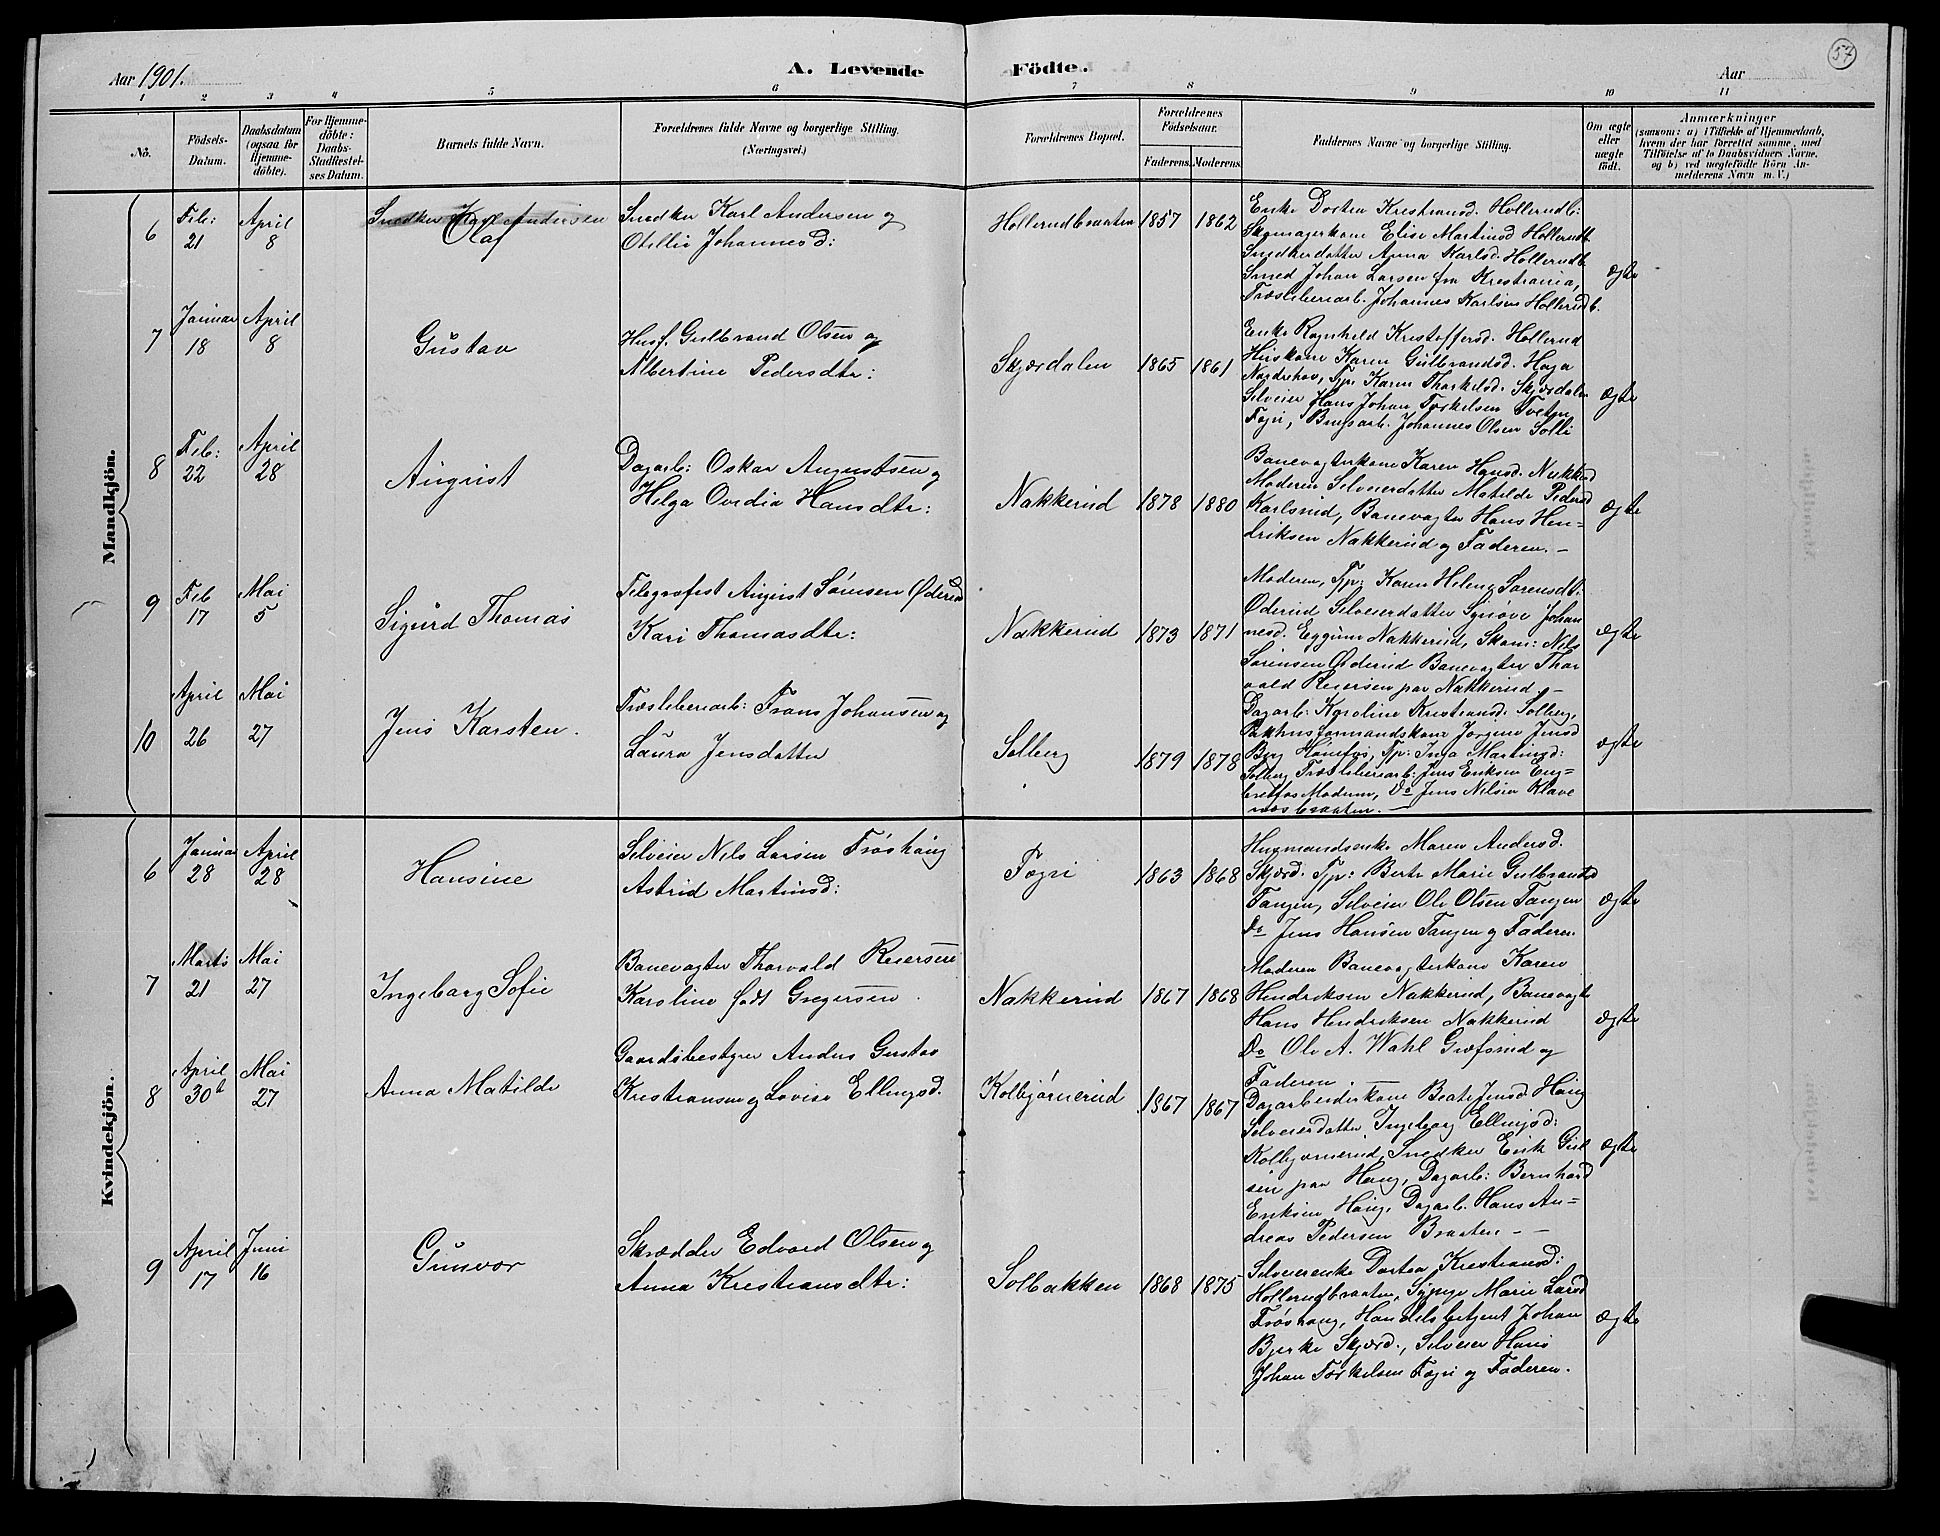 57
Aar 1901.
A. Levende Födte.
Aar
1 2 3 4 5 6 7 8 9 10 11
No.
Födsels-Datum.
Daabsdatum (ogsaa for Hjemme-döbte).
For Hjemme-döbte: Daabs-Stadfæstel-ses Datum.
Barnets fulde Navn.
Forældrenes fulde Navne og borgerlige Stilling. (Næringsvei.)
Forældrenes Bopæl.
Forældrenes Födselsaar.
Faderens. Moderens.
Faddernes Navne og borgerlige Stilling.
Om ægte eller uægte födt.
Anmærkninger
(saasom: a) i Tilfælde af Hjemmedaab,
hvem der har forrettet samme, med
Tilföielse af to Daabsvidners Navne,
og b) ved uægtefödte Börn An-
melderens Navn m. V.)
Mandkjön.
6 Feb: 21 April 8
Snedker Karl Andersen
Olaf
Snedker Karl Andersen og
Otellie Johannesd:
Hollerudbraaten 1857 1862
Enke Dortea Kristiansd. Hollerudb:
Skomagerkone Elise Martinsd Hollerudb.
Snedkerdatter Anna Karlsd. Hollerudb.
Smed Johan Larsen fra Kristiania,
Træsliberiarb. Johannes Karlsen Hollerudb.
ægte
7 Januar 18 April 8
Gustav
Husf. Gulbrand Olsen og
Albertine Pedersdtr:
Skjærdalen 1865 1861
Enke Ragnhild Kristoffersd. Hollerud
Huskone Karen Gulbrandsd. Haga
Norderhov, Tp. Karen Thorkelsd. Skjærdalen
Selveier Hans Johan Torkelsen Tveten
Togri, Brugsarb. Johannes Olsen Solli
ægte
8 Feb: 22 April 28
August
Dagarb: Oskar Augustsen og
Helga Ovedia Hansdtr:
Nakkerud 1878 1880
Banevogterkone Karen Hansd. Nakkerud
Moderen Selveierdatter Matilde Pedersd
Karlsrud, Banevogter Hans Hen-
driksen Nakkerud og Faderen. –
ægte
9 Feb 17 Mai 5
Sigurd Thomas
Telegrafist August Sørensen Øderud
Kari Thomasdtr:
Nakkerud 1873 1871
Moderen, Tp: Karen Helene Sørensdt:
Øderud Selveierdatter Synøve Johan
nesd. Eggum Nakkerud, Skom: Nils
Sørensen Øderud Banevogter Thor
vald Reiersen paa Nakkerud. –
ægte
10 April 26 Mai 27
Jens Karsten.
Træsliberiarb: Frans Johansen og
Laura Jensdatter
Solberg 1879 1878
Dagarb: Karoline Kristiansd. Solberg,
Pakhusformandskone Jørgine Jensd
Berg Hønefos, Tp: Inga Martinsd:
Solberg Træsliberiarb: Jens Eriksen Eng-
bretfos Modum, Do Jens Nilsen Klave
næsbraaten. –
ægte
Kvindekjön.
6 Januar 28 April 28
Hansine
Selveier Nils Larsen Frøshaug
Astrid Martinsd:
Togri 1863 1868
Husmandsenke Maren Andersd.
Skjærd. Tp: Berte Marie Gulbrandsd
Tangen, Selveier Ole Olsen Tangen
Do Jens Hansen Tangen og Faderen.
ægte
7 Marts 21 Mai 27
Ingeborg Sofie
Banevogter Thorvald Reiersen
Karoline født Gregersen.
Nakkerud 1867 1868
Moderen Banevogterkone Karen
Hendriksen Nakkerud, Banevogter
Hans Hendriksen Nakkerud
Do Ole A. Wahl Græfsrud og
Faderen. –
ægte
8 April 30te Mai 27
Anna Matilde
Gaardsbestyrer Anders Gustav
Kristiansen og Lovise Ellingsd.
Kolbjørnerud 1867 1867
Dagarbeiderkone Beate Jensd Haug
Selveierdatter Ingeborg Ellingsd:
Kolbjørnerud, Snedker Erik Giil
sen paa Haug, Dagarb: Bernhard
Eriksen Haug, Dagarb. Hans An-
dreas Pedersen Braaten – –
ægte
9 April 17 Juni 16
Gunvor
Skrædder Edvard Olsen og
Anna Kristiansdtr:
Solbakken 1868 1875
Selveierenke Dortea Kristiansd:
Hollerudbraaten, Sypige Marie Larsd
Frøshaug, Handelsbetjent Johan
Bjerke Skjærd., Selveier Hans
Johan Torkelsen Togri og Faderen.
ægte